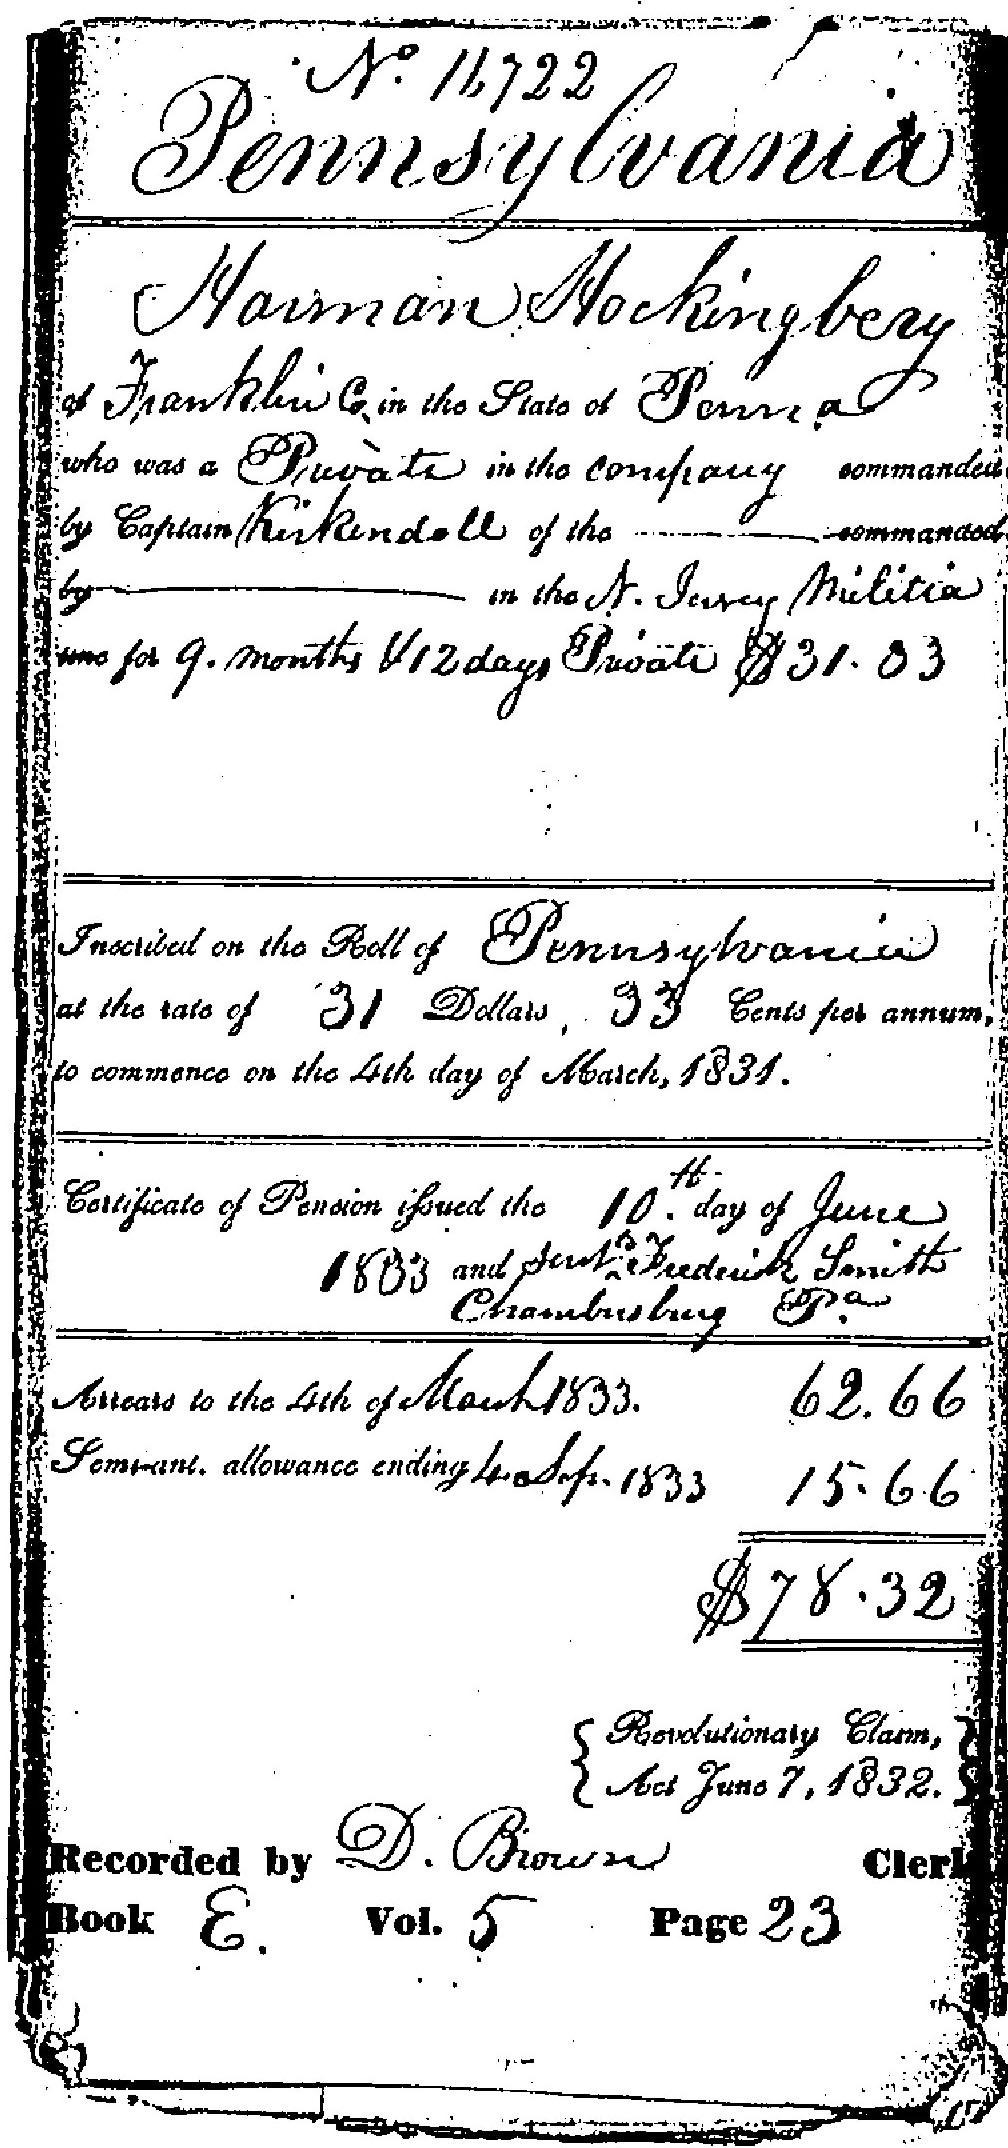 No. 16722
Pennsylvania
Harman Hockingbery
of Franklin Co. in the State of Penna
who was a Private in the company commanded
by Captain Kirkendoll of the commanded
by in the N. Jersey Militia
for 9. months & 12 days Private $31.33
Inscribed on the Roll of Pennsylvania
at the rate of 31 Dollars, 33 Cents per annum,
to commence on the 4th day of March, 1831.
Certificate of Pension issued the 10th. day of June
1833 and sent Frederick Smith
Chambersburg Pa
Arrears to the 4th of March 1833. 62.66
Semi-anl. allowance ending 4 Sep. 1833 15.66
$78.32
{ Revolutionary Claim, }
{ Act June 7, 1832. }
Recorded by D. Brown Clerk
Book E. Vol. 5 Page 23